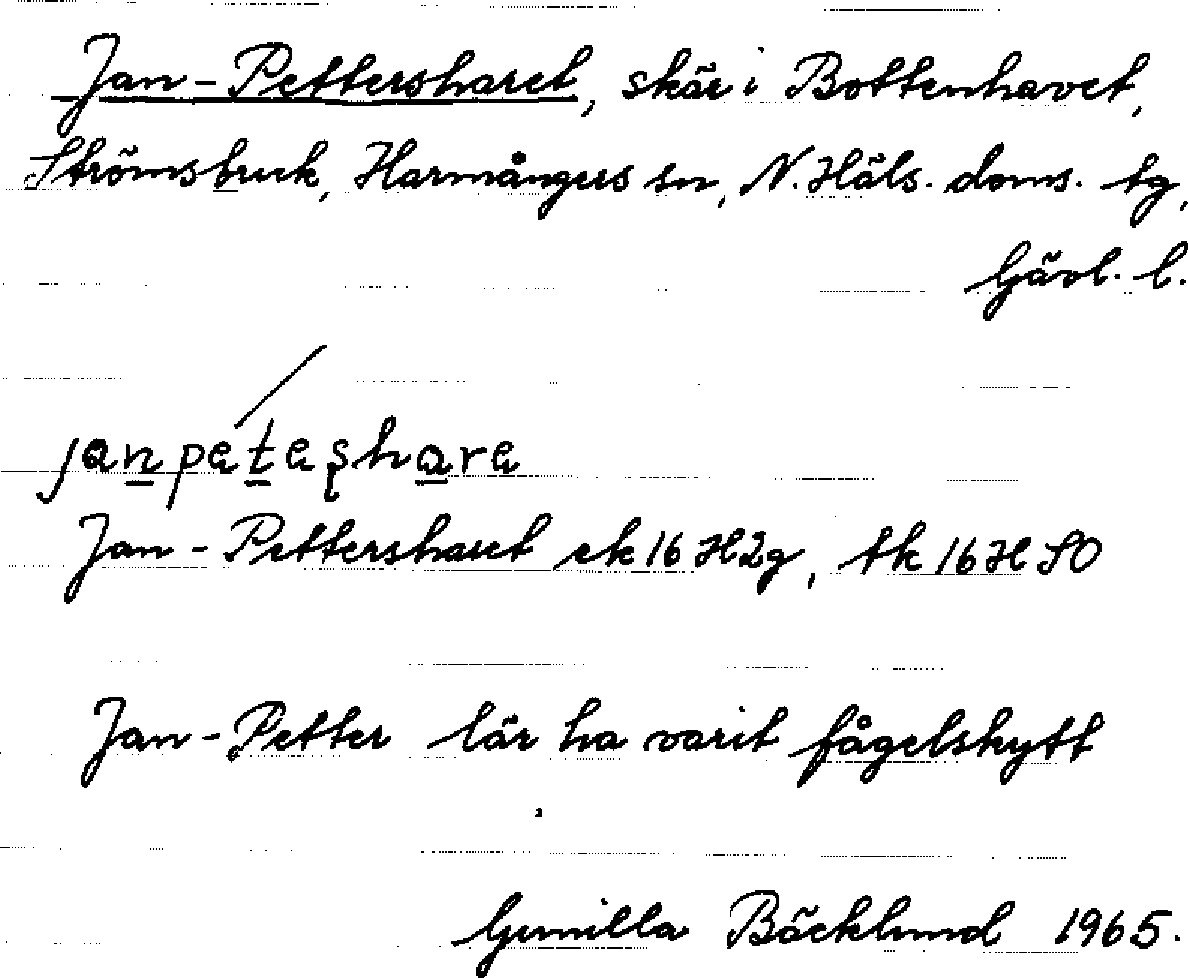 Jan-Pettersharet, skär i Bottenhavet,
Strömsbruk, Harmångers sn, N. Häls. doms. tg,
Gävl. l.
janpetashare
Jan-Pettersharet ek 16 H2g, tk 16 H SO
Jan-Petter lär ha varit fågelskytt
Gunilla Bäcklund 1965.